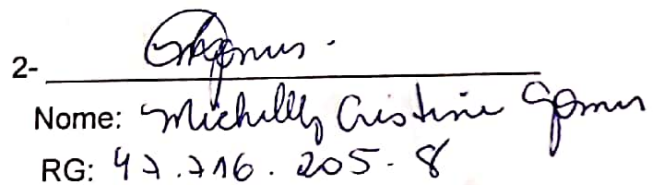 2-
Nome: Michelly Cristine Gomes
RG: 47.716.205-8